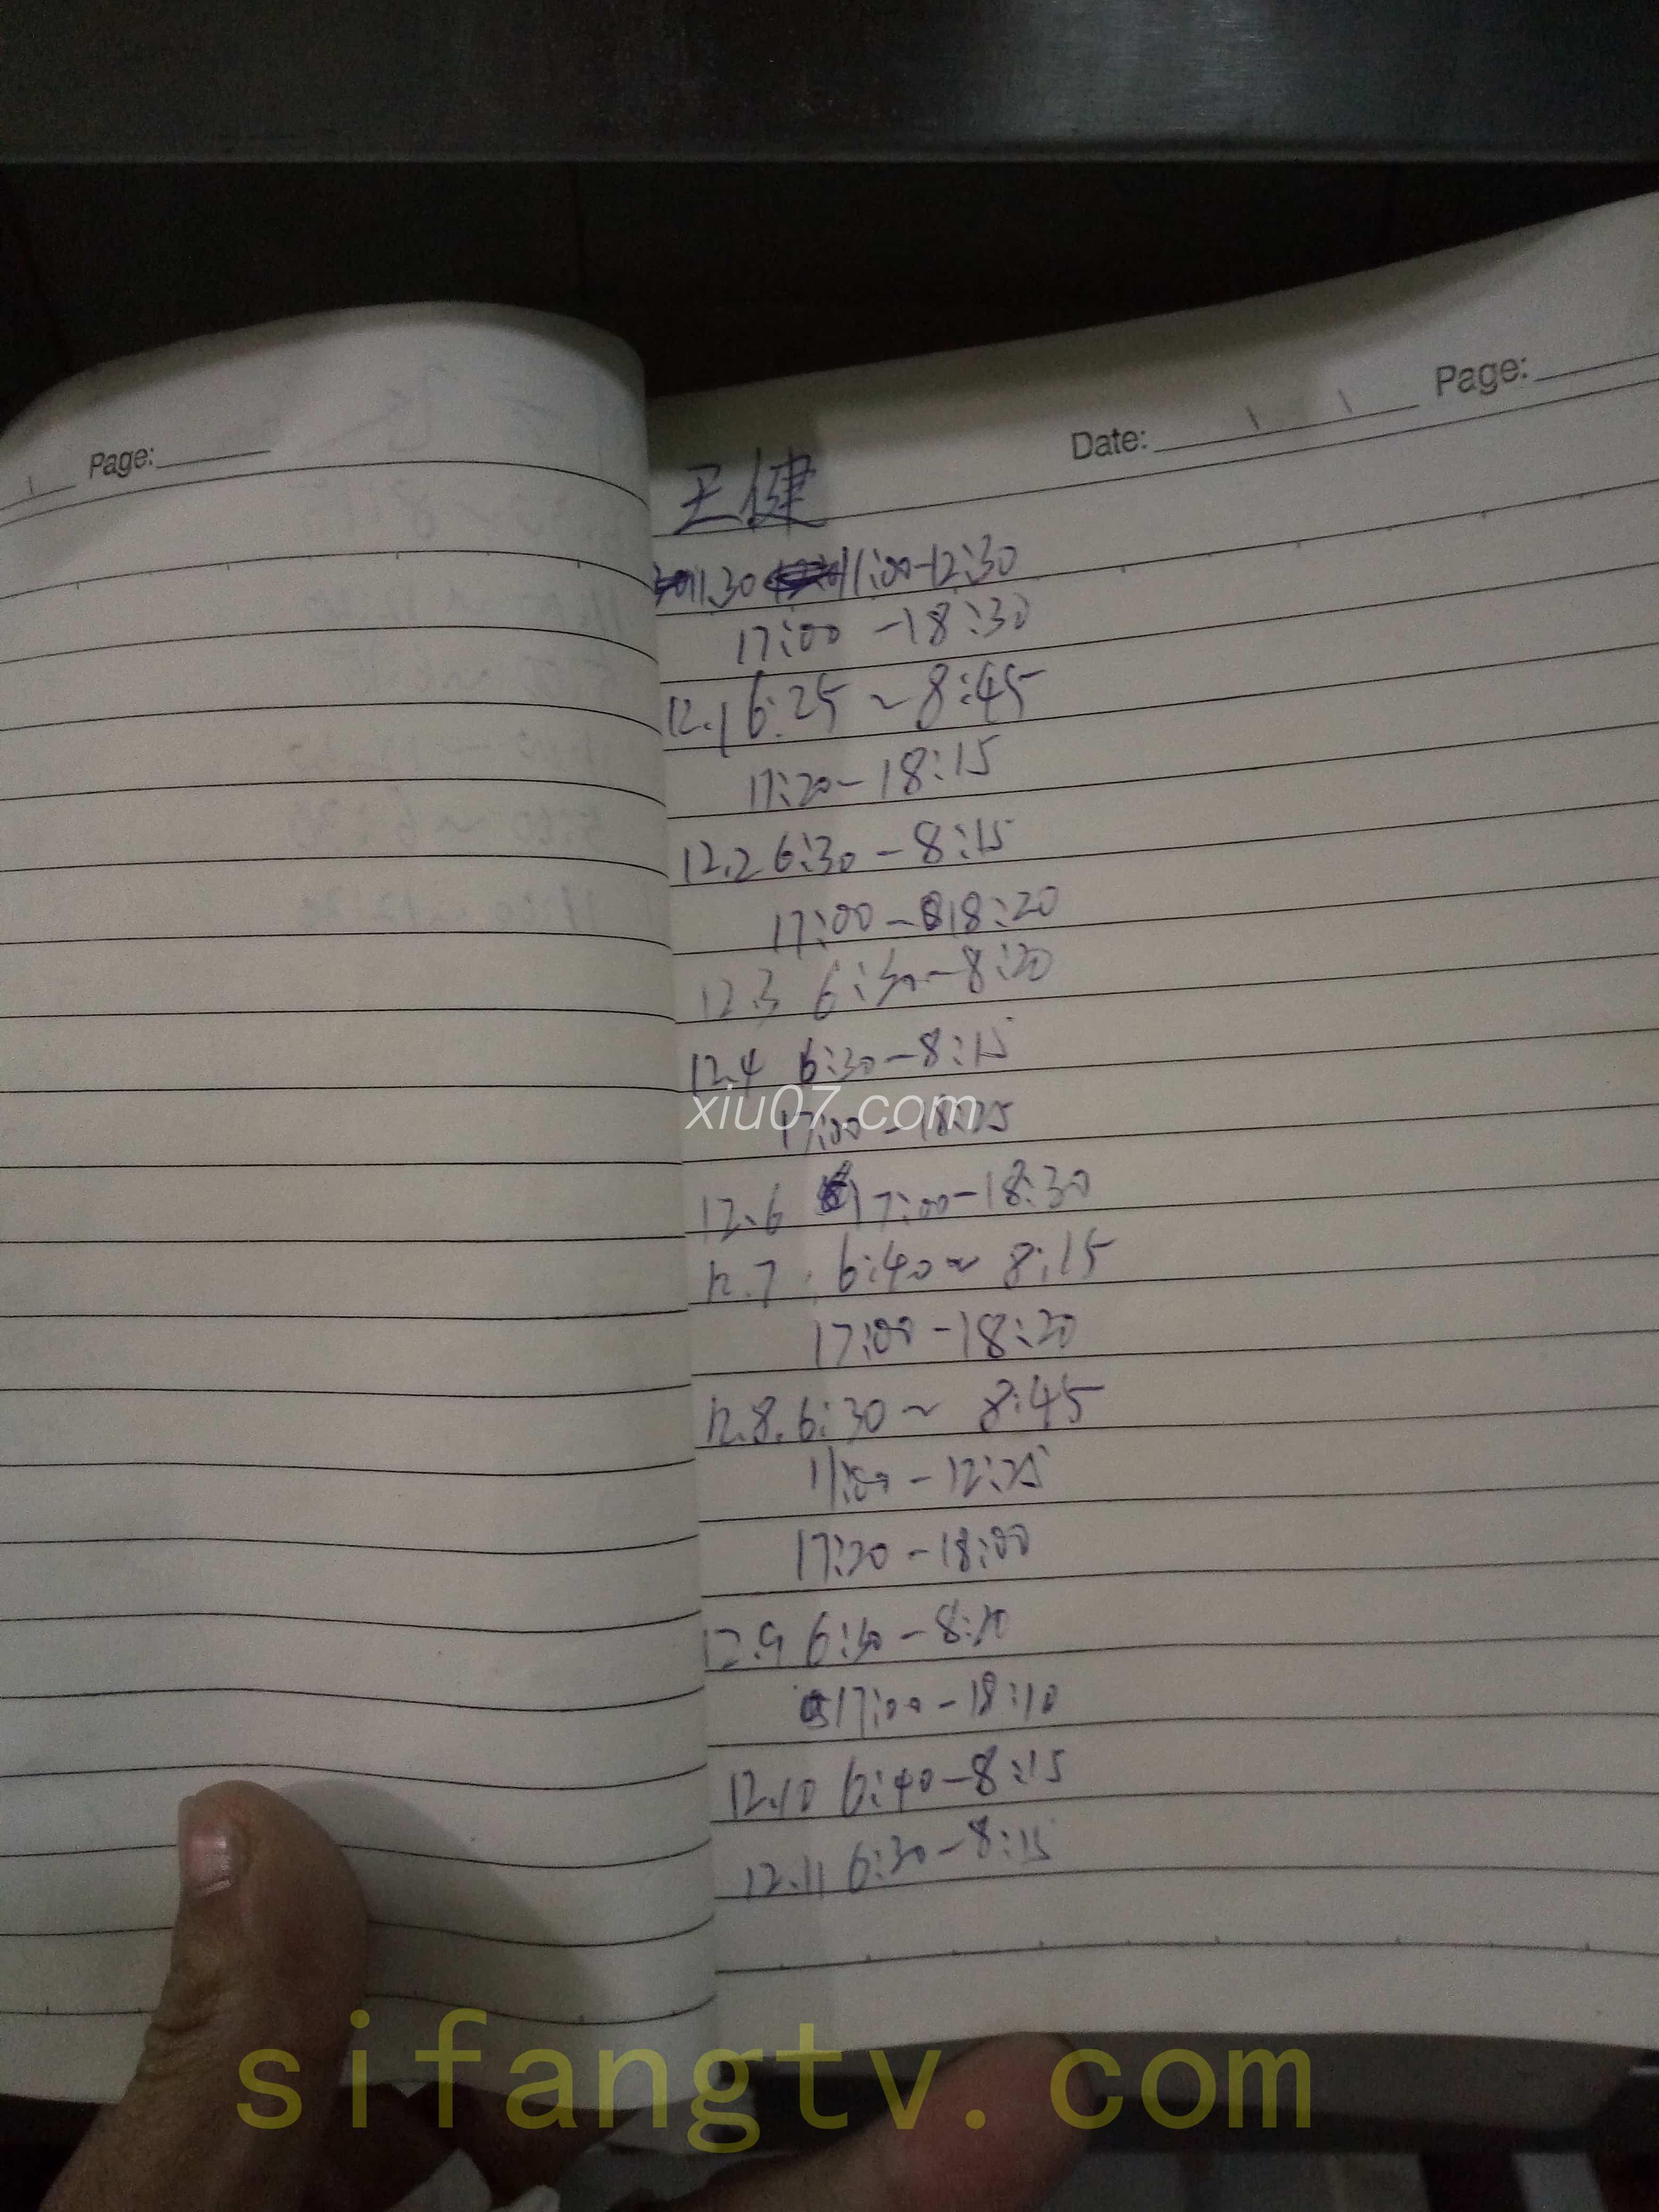 Page:
Date: Page:
王健
11.30 11:00-12:30
17:00-18:30
12.1 6:25~8:45
17:20-18:15
12.2 6:30-8:15
17:00-18:20
12.3 6:30-8:20
12.4 6:30-8:15
xiu07.com
17:00-18:25
12.6 17:00-18:30
12.7 6:40~8:15
17:00-18:20
12.8. 6:30~8:45
11:00-12:25
17:20-18:00
12.9 6:30-8:20
17:00-18:10
12.10 6:40-8:15
12.11 6:30-8:15
sifangtv.com